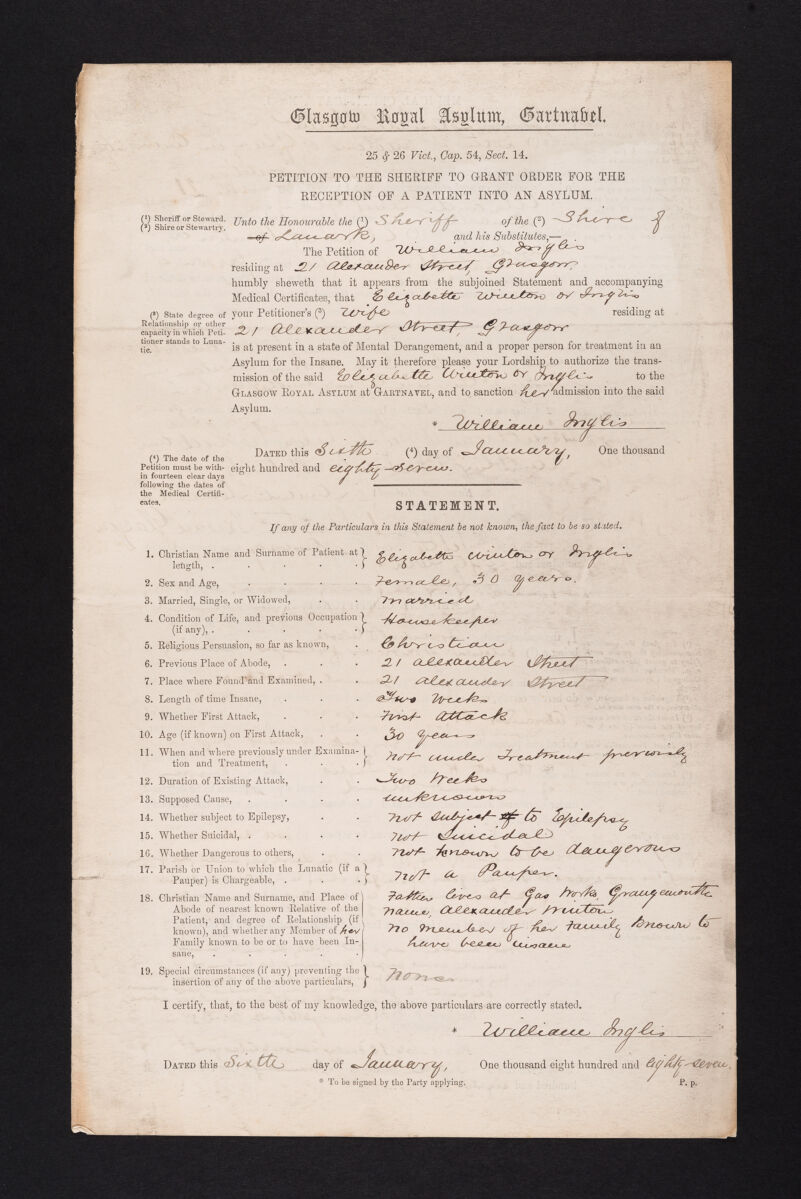 Glasgow Royal Asylum, Gartnabel.
25 & 26 Vict., Cap. 54, Sect. 14.
PETITION TO THE SHERIFF TO GRANT ORDER FOR THE
RECEPTION OF A PATIENT INTO AN ASYLUM.
(1) Sheriff or Steward.
(2) Shire or Stewartry.
Unto the Honourable the (1) Sheriff of the (2) Shire of
of Lanark, and his Substitutes,—
The Petition of William Inglis
residing at 21 Alexander Street, Glasgow,
humbly sheweth that it appears from the subjoined Statement and accompanying
Medical Certificates, that Elizabeth Winton or Inglis
(3) State degree of
Relationship or other
capacity in which Peti-
tioner stands to Luna-
tic.
your Petitioner's (3) Wife residing at
21 Alexander Street, Glasgow
is at present in a state of Mental Derangement, and a proper person for treatment in an
Asylum for the Insane. May it therefore please your Lordship to authorize the trans-
mission of the said Elizabeth Winton or Inglis to the
GLASGOW ROYAL ASYLUM at GARTNAVEL, and to sanction her admission into the said
Asylum.
* William Inglis
(4) The date of the
Petition must be with-
in fourteen clear days
following the dates of
the Medical Certifi-
cates.
DATED this Sixth (4) day of January, One thousand
eight hundred and eighty-seven.
STATEMENT.
If any of the Particulars in this Statement be not known, the fact to be so stated.
1. Christian Name and Surname of Patient at
length, . . . . . Elizabeth Winton or Inglis
2. Sex and Age, . . . . Female, 30 years.
3. Married, Single, or Widowed, . . Married
4. Condition of Life, and previous Occupation
(if any), . . . . . Housekeeper
5. Religious Persuasion, so far as known, . Christian
6. Previous Place of Abode, . . . 21 Alexander Street
7. Place where Found and Examined, . . 21 Alexander Street
8. Length of time Insane, . . . Two Weeks
9. Whether First Attack, . . . First Attack
10. Age (if known) on First Attack, . . 30 years
11. When and where previously under Examina-
tion and Treatment, . . . Not under Treatment previously
12. Duration of Existing Attack, . . Two Weeks
13. Supposed Cause, . . . . unknown
14. Whether subject to Epilepsy, . . Not subject of to Epilepsy
15. Whether Suicidal, . . . . Not Suicidal
16. Whether Dangerous to others, . . Not known to be dangerous
17. Parish or Union to which the Lunatic (if a
Pauper) is Chargeable, . . . Not a Pauper.
18. Christian Name and Surname, and Place of
Abode of nearest known Relative of the
Patient, and degree of Relationship (if
known), and whether any Member of her
Family known to be or to have been In-
sane, . . . . .
Father lives at Gas Works, Grangemouth
name, Alexander Winton
No member of her family known to
have been insane
19. Special circumstances (if any) preventing the
insertion of any of the above particulars, None
I certify, that, to the best of my knowledge, the above particulars are correctly stated.
* William Inglis
DATED this Sixth day of January, One thousand eight hundred and eighty-seven.
* To be signed by the Party applying.
P. p.